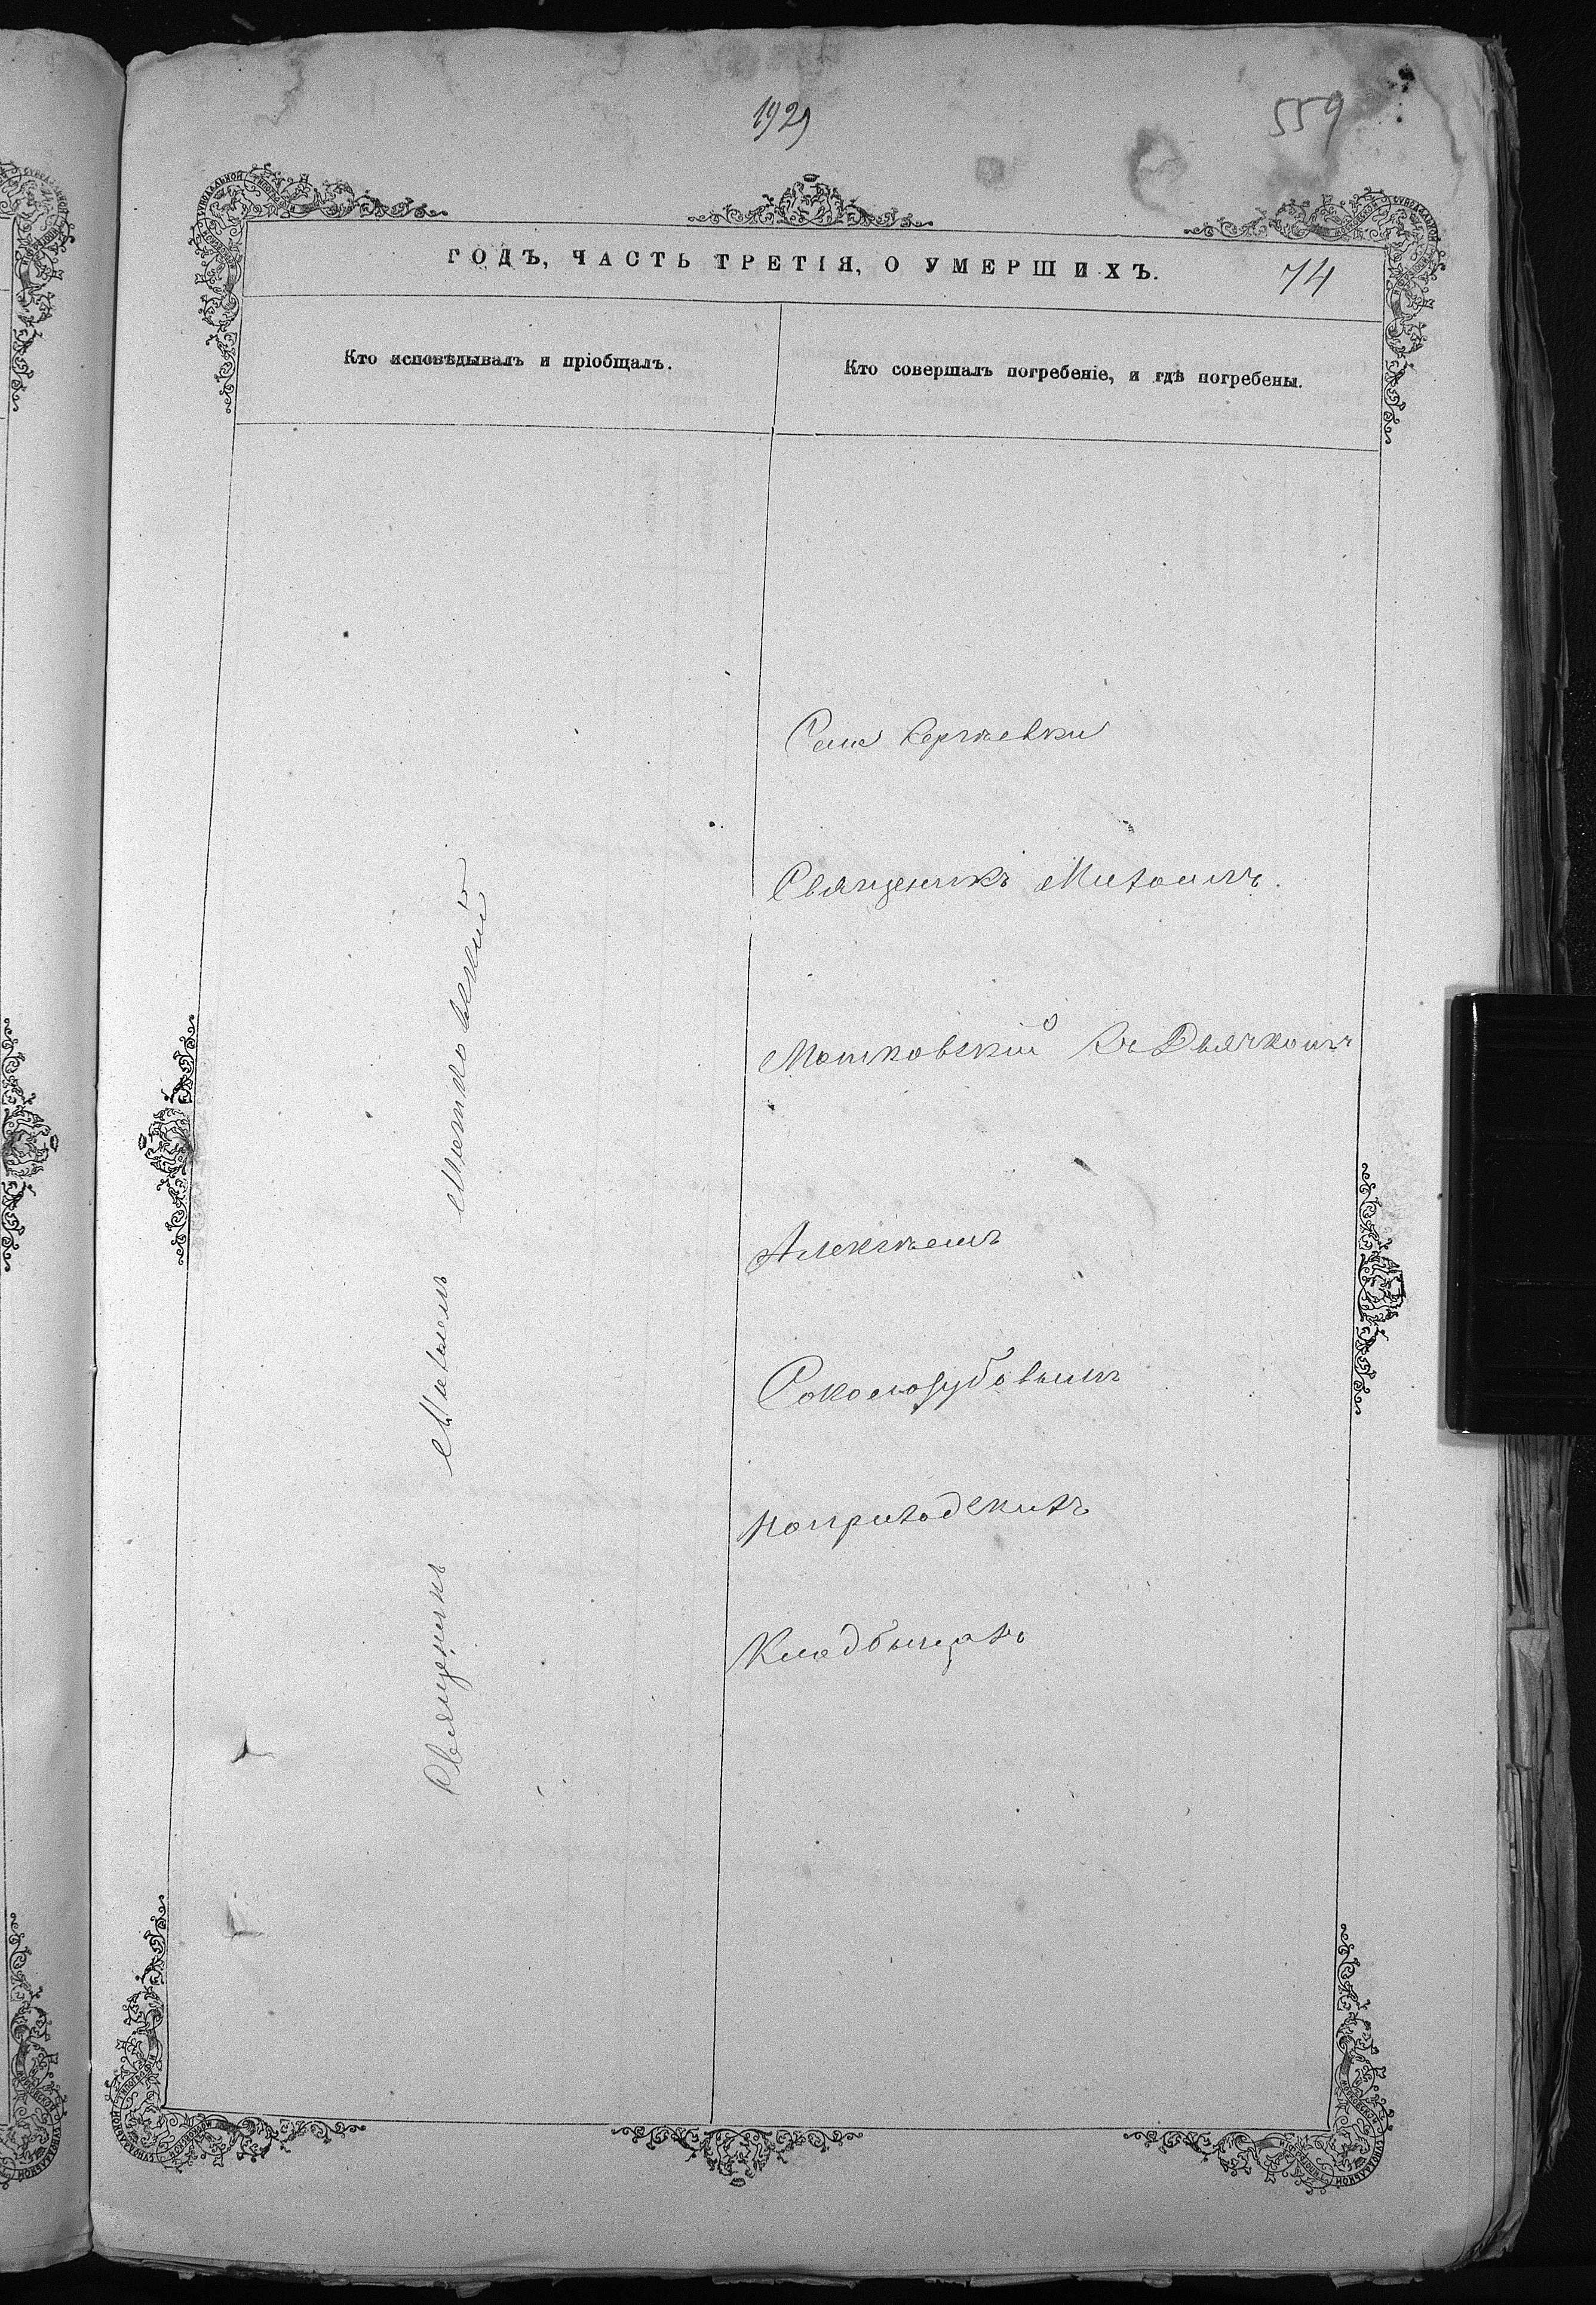 1929
559
ГОДЪ, ЧАСТЬ ТРЕТІЯ, О УМЕРШИХЪ.
74
Кто исповѣдывалъ и пріобщалъ.
Кто совершалъ погребеніе, и гдѣ погребены.
Священикъ Михаилъ Матковскій
Села Сергѣевки
Священикъ Михаилъ.
Матковскій Съ Дьячкомъ
Алексѣемъ
Соколозубовымъ
На приходскихъ
Кладбищахъ